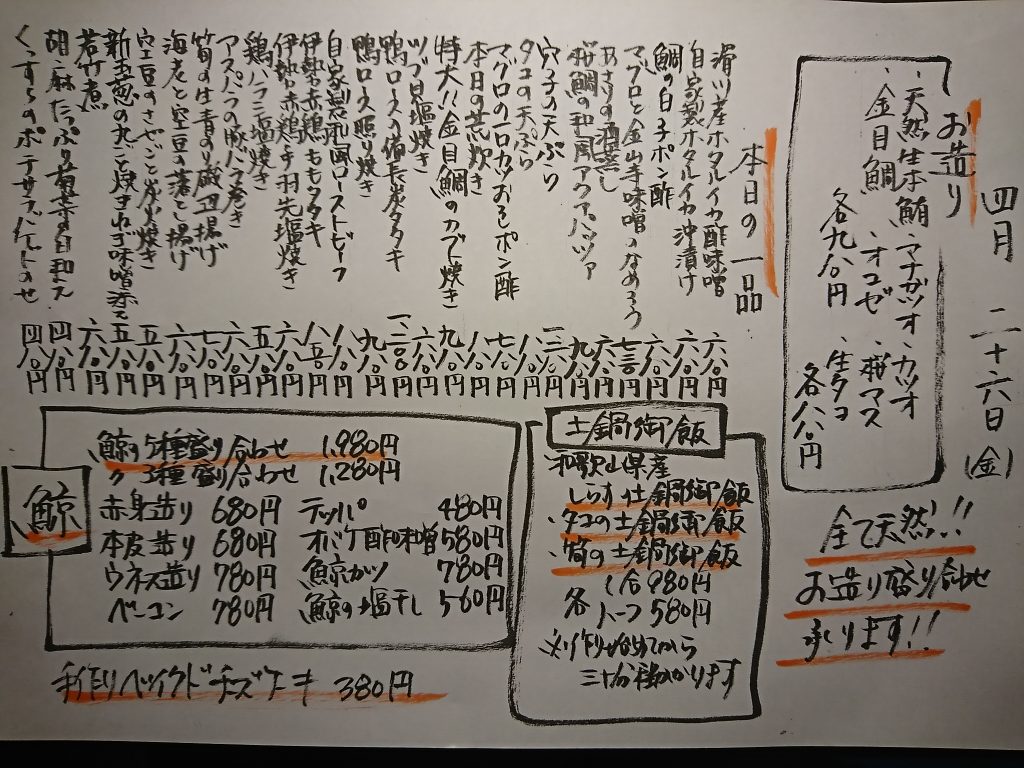 四月 二十六日(金)
お造り
・天然生本鮪 ・マナガツオ ・カツオ
・金目鯛 ・オコゼ ・桜マス ・生タコ
各九八〇円 各八八〇円
全て天然!!
お造り盛り合わせ
承ります!!
本日の一品
滑川産ホタルイカ酢味噌 六八〇円
自家製ホタルイカ沖漬け 六八〇円
鯛の白子ポン酢 六八〇円
マグロと金山寺味噌のなめろう 七三〇円
あさりの酒蒸し 六八〇円
桜鯛の和風アクアパッツァ 九八〇円
穴子の天ぷら
タコの天ぷら 八八〇円
マグロの一口カツおろしポン酢 七八〇円
本日の荒炊き 八八〇円
特大!!金目鯛のカブト焼き 九八〇円
ツブ貝塩焼き 六八〇円
鴨ロースの備長炭タタキ
鴨ロース照り焼き 九八〇円
自家製和風ローストビーフ 八八〇円
伊勢赤鶏ももタタキ 八五〇円
伊勢赤鶏手羽先塩焼き 六八〇円
鶏ハラミ塩焼き 五八〇円
アスパラの豚バラ巻き 六八〇円
筍の生青のり磯辺揚げ 七八〇円
海老と空豆の落とし揚げ 六八〇円
空豆のさやごと炭火焼き 五八〇円
新玉葱の丸ごと焼き 五八〇円
若竹煮 六八〇円
胡麻たっぷり菊菜の白和え 四八〇円
ポテサラ 四八〇円
土鍋御飯
和歌山県産
しらす土鍋御飯
・タコの土鍋御飯
・筍の土鍋御飯
各 1合 980円
ハーフ 580円
※作り始めてから
三十分程かかります
鯨
鯨の5種盛り合わせ 1,980円
〃 3種盛り合わせ 1,280円
赤身造り 680円 テッパ 480円
本皮造り 680円 オバケ酢味噌 580円
ウネス造り 780円 鯨カツ 780円
ベーコン 780円 鯨の塩干し 560円
手作りベイクドチーズケーキ 380円